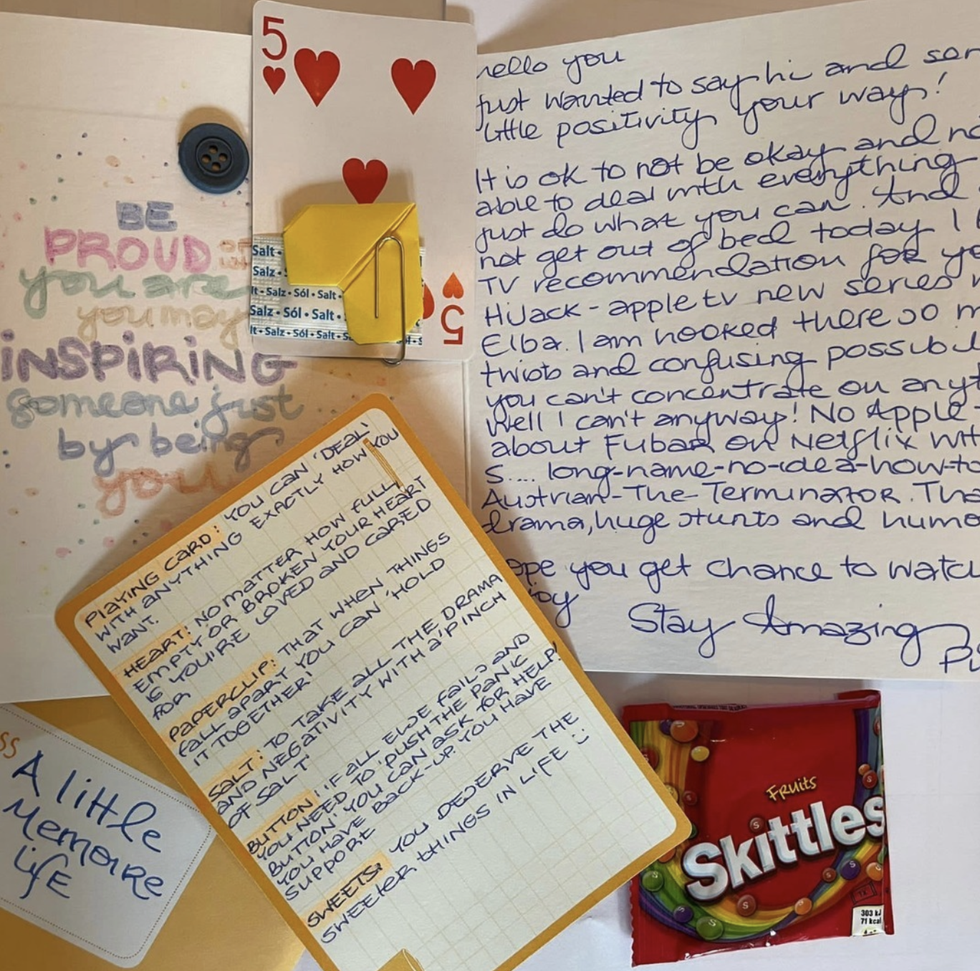 BE
PROUD OF
you are
you may
INSPIRING
someone just
by being
you
5
5
Salt •
Salz •
lt • Salz • Sól • Salt •
Salz • Sól • Salt •
lt • Salz • Sól • Salt •
hello you
Just wanted to say hi and
little positivity your way!
It is ok to not be okay and
able to deal with everything
just do what you can. And
not get out of bed today I
TV recommendation for
HiJack - apple tv new series
Elba. I am hooked there so
twists and confusing
you can't concentrate on
Well I can't anyway! No Apple
about Fubar on Netflix
S.... long-name-no-idea-how-to
Austrian-The-Terminator.
drama, huge stunts and
you get chance to watch
Stay Amazing
PLAYING CARD: YOU CAN 'DEAL'
WITH ANYTHING EXACTLY HOW YOU
WANT.
HEART: NO MATTER HOW FULL,
EMPTY OR BROKEN YOUR HEART
IS YOU'RE LOVED AND CARED
FOR
PAPERCLIP: THAT WHEN THINGS
FALL APART YOU CAN 'HOLD
IT TOGETHER'
SALT: TO TAKE ALL THE DRAMA
AND NEGATIVITY WITH A 'PINCH
OF SALT'
BUTTON: IF ALL ELSE FAILS AND
YOU NEED TO 'PUSH THE PANIC
BUTTON' YOU CAN ASK FOR HELP!
YOU HAVE BACK-UP YOU HAVE
SUPPORT
SWEETS: YOU DESERVE THE
SWEETER THINGS IN LIFE :)
A little
Memoire
Life
Fruits
Skittles
303 kJ
71 kcal